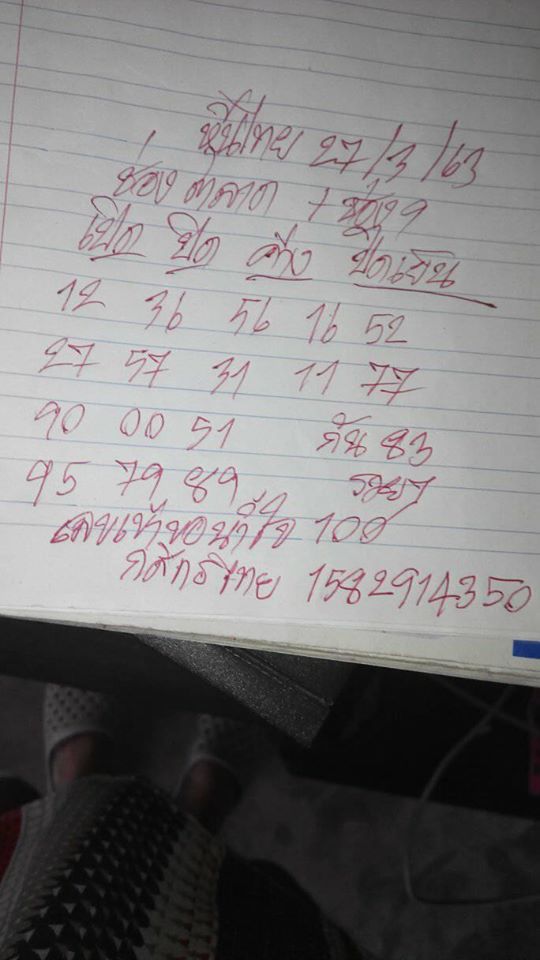 หุ้นไทย 27/3/63
ช่อง ตลาด + ช่อง 9
เปิด ปิด ค้าง ปิดเย็น
12 36 56 16 52
27 57 31 11 77
90 00 51 กัน 83
95 79 89 รวย
เลขเข้าขอน้ำใจ 100
กสิกรไทย 1582914350